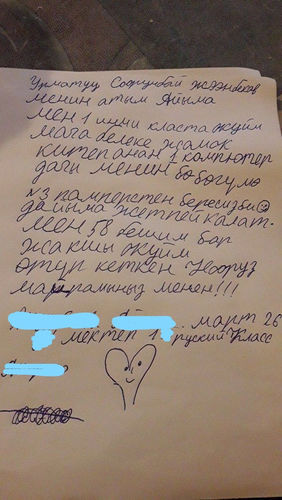 Урматуц Сооронбай Жээнбеков
менин атым Айыма
мен 1 инчи класта окуйм
мага белеке жамок
китеп анан 1 компютер
дагы менин бөбөгүмө
№3 памперстен бересизби
дайыма жетпей калат.
мен 5ѳ бешим бар
жакшы окуйм
өтүп кеткен Нооруз
майрамыныз менен!!!
март 26
мектеп 1 руский Класс